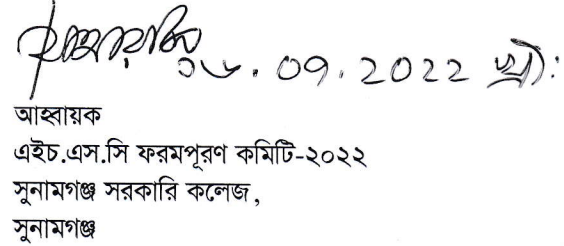 ০৮.০9.2022 খ্রী:
আহ্বায়ক
এইচ.এস.সি ফরমপূরণ কমিটি-২০২২
সুনামগঞ্জ সরকারি কলেজ,
সুনামগঞ্জ